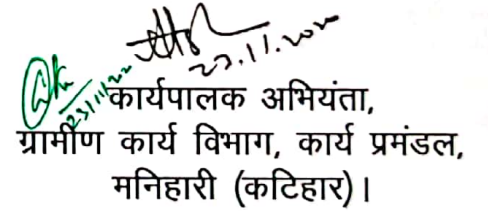 23.11.2020
23/11/20
कार्यपालक अभियंता,
ग्रामीण कार्य विभाग, कार्य प्रमंडल,
मनिहारी (कटिहार)।